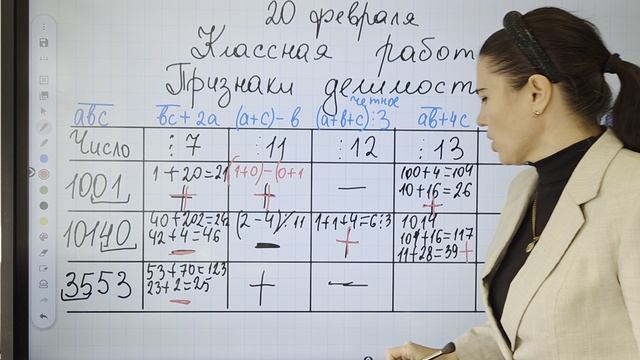 20 февраля
Классная работ
Признаки делимост
abc bc + 2a (a+c) - b (a+b+c) : 3 ab + 4c
четное
Число ⋮ 7 ⋮ 11 ⋮ 12 ⋮ 13
1001 1 + 20 = 21 (1+0) - (0+1 — 100 + 4 = 104
+ + 10 + 16 = 26
+
10140 40 + 202 = 242 (2 - 4) ⋮ 11 1+1+4=6 : 3 1014
42 + 4 = 46 — + 101 + 16 = 117
— 11 + 28 = 39 +
3553 53 + 70 = 123 + —
23 + 2 = 25
—